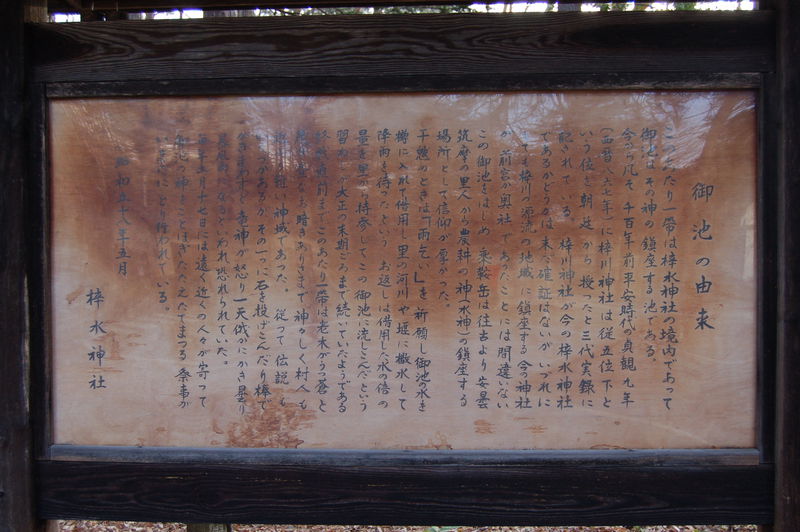 御池の由来
このあたり一帯は梓水神社の境内であって
御池は、その神の鎮座する池である。
今から凡そ千百年前平安時代の貞観九年
(西暦八六七年)に梓川神社は従五位下と
いう位を朝廷から授ったと三代実録に
記されている。梓川神社が今の梓水神社
であるかどうかは未だ確証はないが、いづれに
しても梓川の源流の地域に鎮座する今の神社
が「前宮か奥社」であったことには間違いない
この御池をはじめ乗鞍岳は往古より安曇
筑摩の里人から農耕の神(水神)の鎮座する
場所として信仰が厚かった。
干憊のときは「雨乞い」を祈願し御池の水を
樽に入れて借用し里の河川や堰に撒水して
降雨を待ったという お返しは借用した水の倍の
量を里から持参してこの御池に注ぎこんだという
習わしが大正の末期ごろまで続いていたようである
終戦直前までこのあたり一帯は老木がうっ蒼と
なお暗きありさまで神々しく村人も
神域であった。従って伝説も
いくつかあるが その一つに石を投げこんだり棒で
かきまわすと竜神が怒り一天俄かにかき曇り
になるといわれ恐れられていた。
毎年五月十七日には遠く近くの人々が寄って
御池の神をことほぎたたえたてまつる祭事が
とり行われている。
昭和五十八年五月
梓水神社